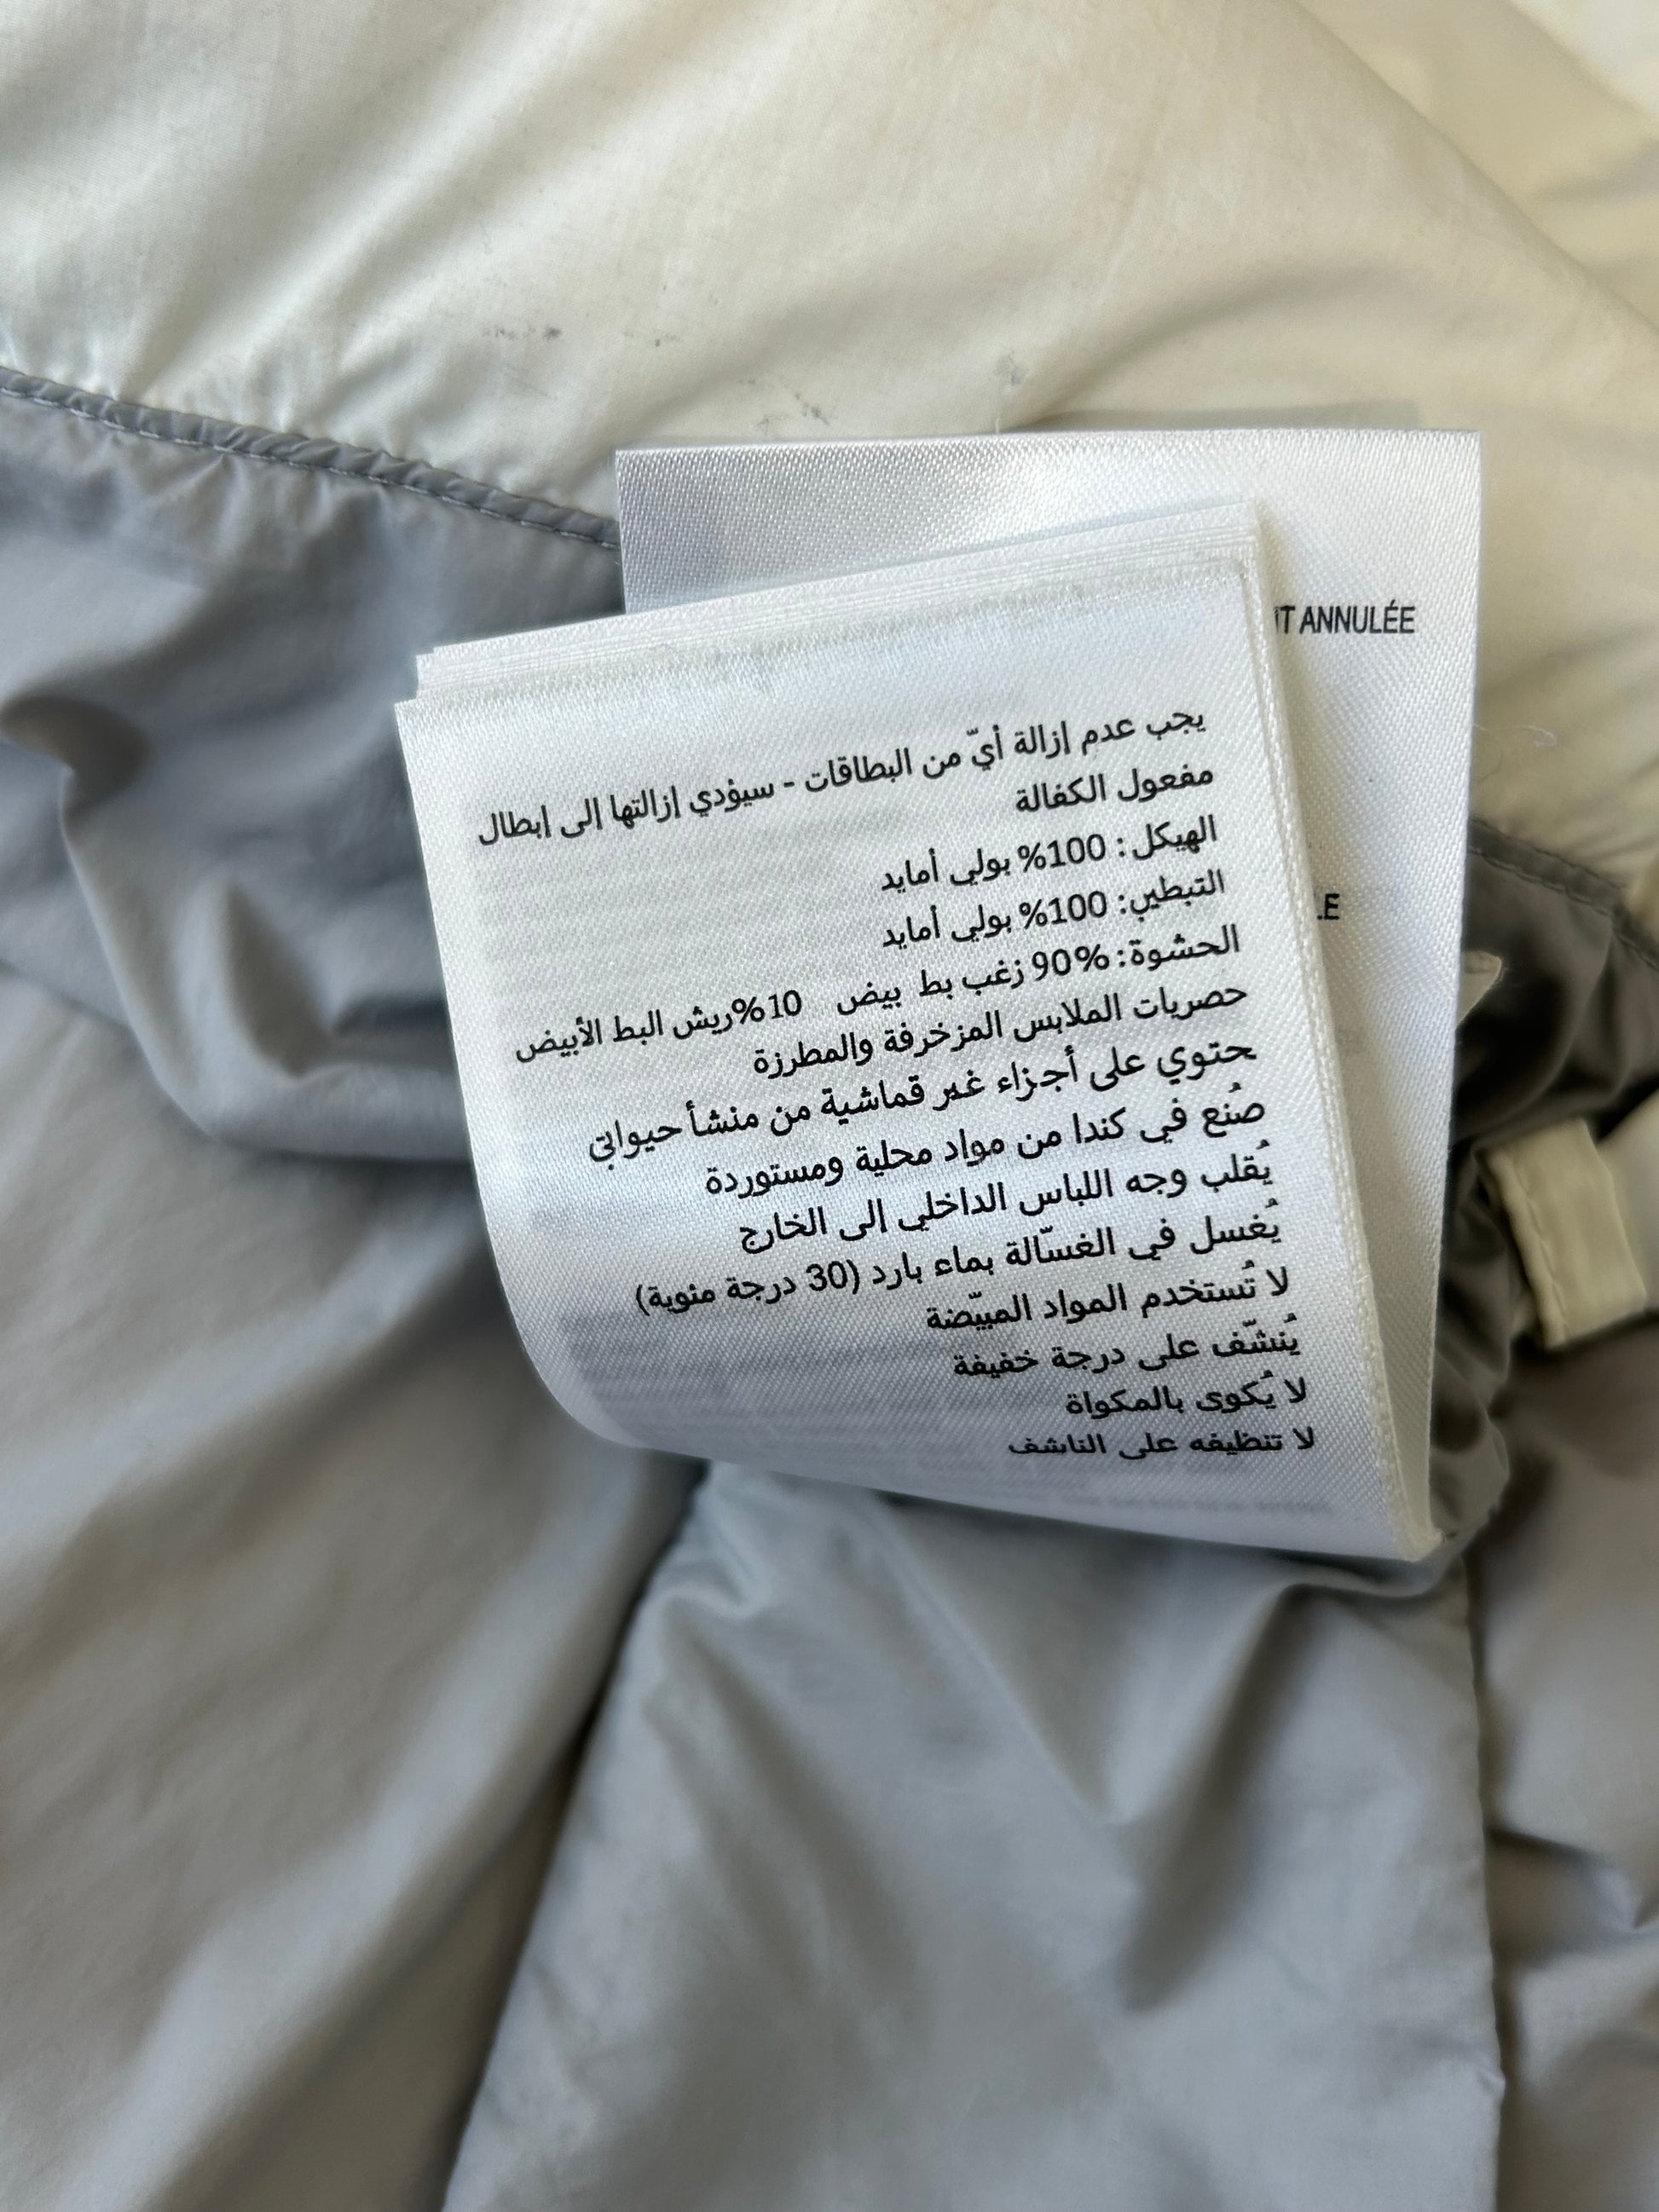 يجب عدم إزالة أيّ من البطاقات - سيؤدي إزالتها إلى إبطال
مفعول الكفالة
الهيكل: 100% بولي أمايد
التبطين: 100% بولي أمايد
الحشوة: 90% زغب بط بيض 10%ريش البط الأبيض
حصريات الملابس المزخرفة والمطرزة
حتوي على أجزاء غير قماشية من منشأ حيواني
صُنع في كندا من مواد محلية ومستوردة
يُقلب وجه اللباس الداخلي إلى الخارج
يُغسل في الغسّالة بماء بارد (30 درجة مئوية)
لا تُستخدم المواد المبيّضة
يُنشّف على درجة خفيفة
لا يُكوى بالمكواة
لا تنظيفه على الناشف
ANNULÉE